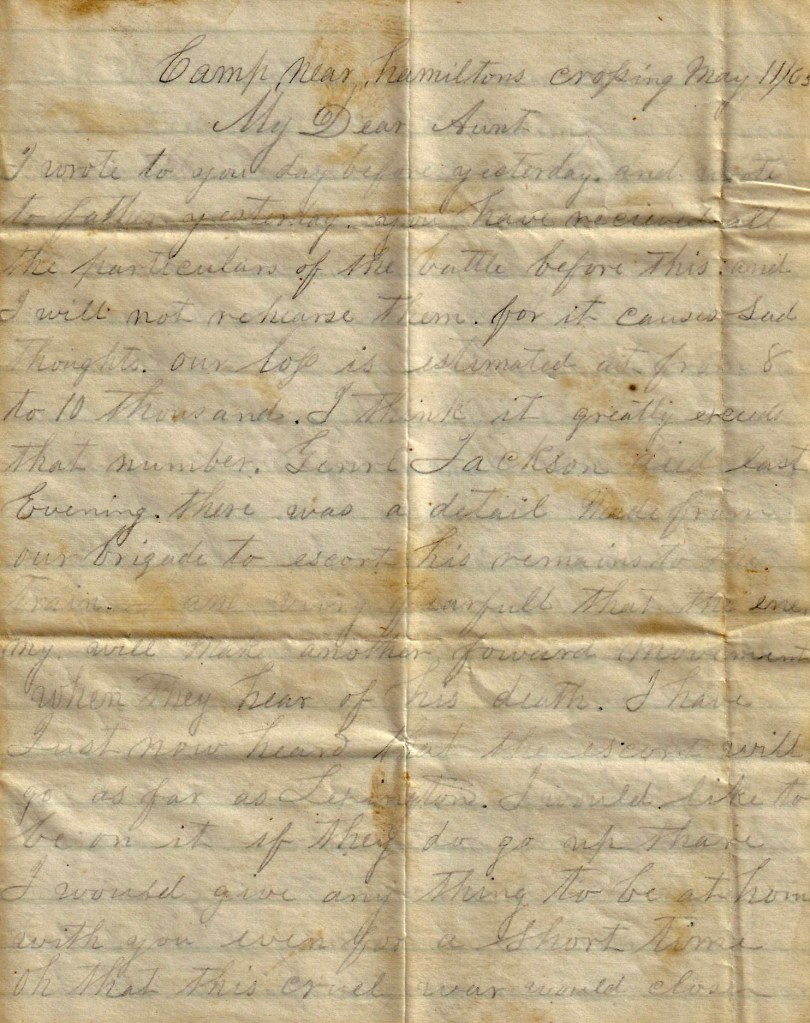 Camp near hamiltons crossing May 11/63
My Dear Aunt
I wrote to you day before yesterday. and wrote
to father yesterday. you have recieved all
the particulars of the battle before this. and
I will not rehearse them. for it causes Sad
thoughts. our loss is estimated at from 8
to 10 thousand. I think it greatly exceeds
that number. Genrl Jackson died last
Evening. there was a detail made from
our brigade to escort his remains to the
Train. am very fearfull that the ene
my will make another foward movement
when they hear of his death. I have
Just now heard that the escort will
go as far as Lexington. I would like to
be on it if they do go up thare
I would give any thing to be at hom
with you even for a short time
oh that this cruel war would close